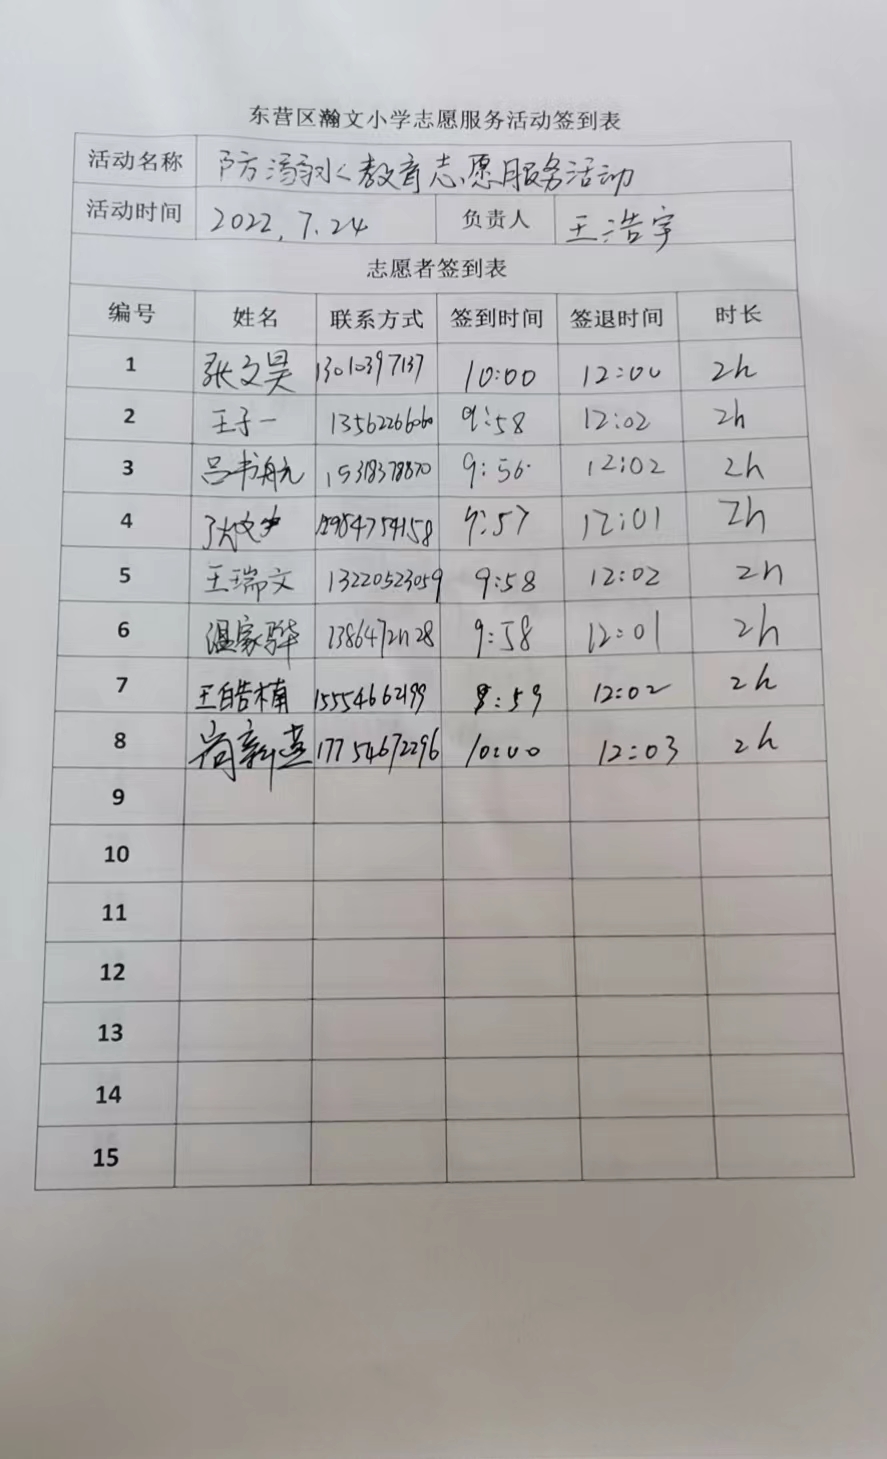 东营区瀚文小学志愿服务活动签到表
活动名称 防溺水教育志愿服务活动
活动时间 2022.7.24 负责人 王浩宇
志愿者签到表
编号 姓名 联系方式 签到时间 签退时间 时长
1 张文昊 13010397137 10:00 12:00 2h
2 王子一 13562266060 9:58 12:02 2h
3 吕书航 15318378870 9:56 12:02 2h
4 9:57 12:01 2h
5 王瑞文 13220523059 9:58 12:02 2h
6 温家骅 9:58 12:01 2h
7 王皓楠 15554662199 12:02 2h
8 尚新燕 17754672296 10:00 12:03 2h
9
10
11
12
13
14
15